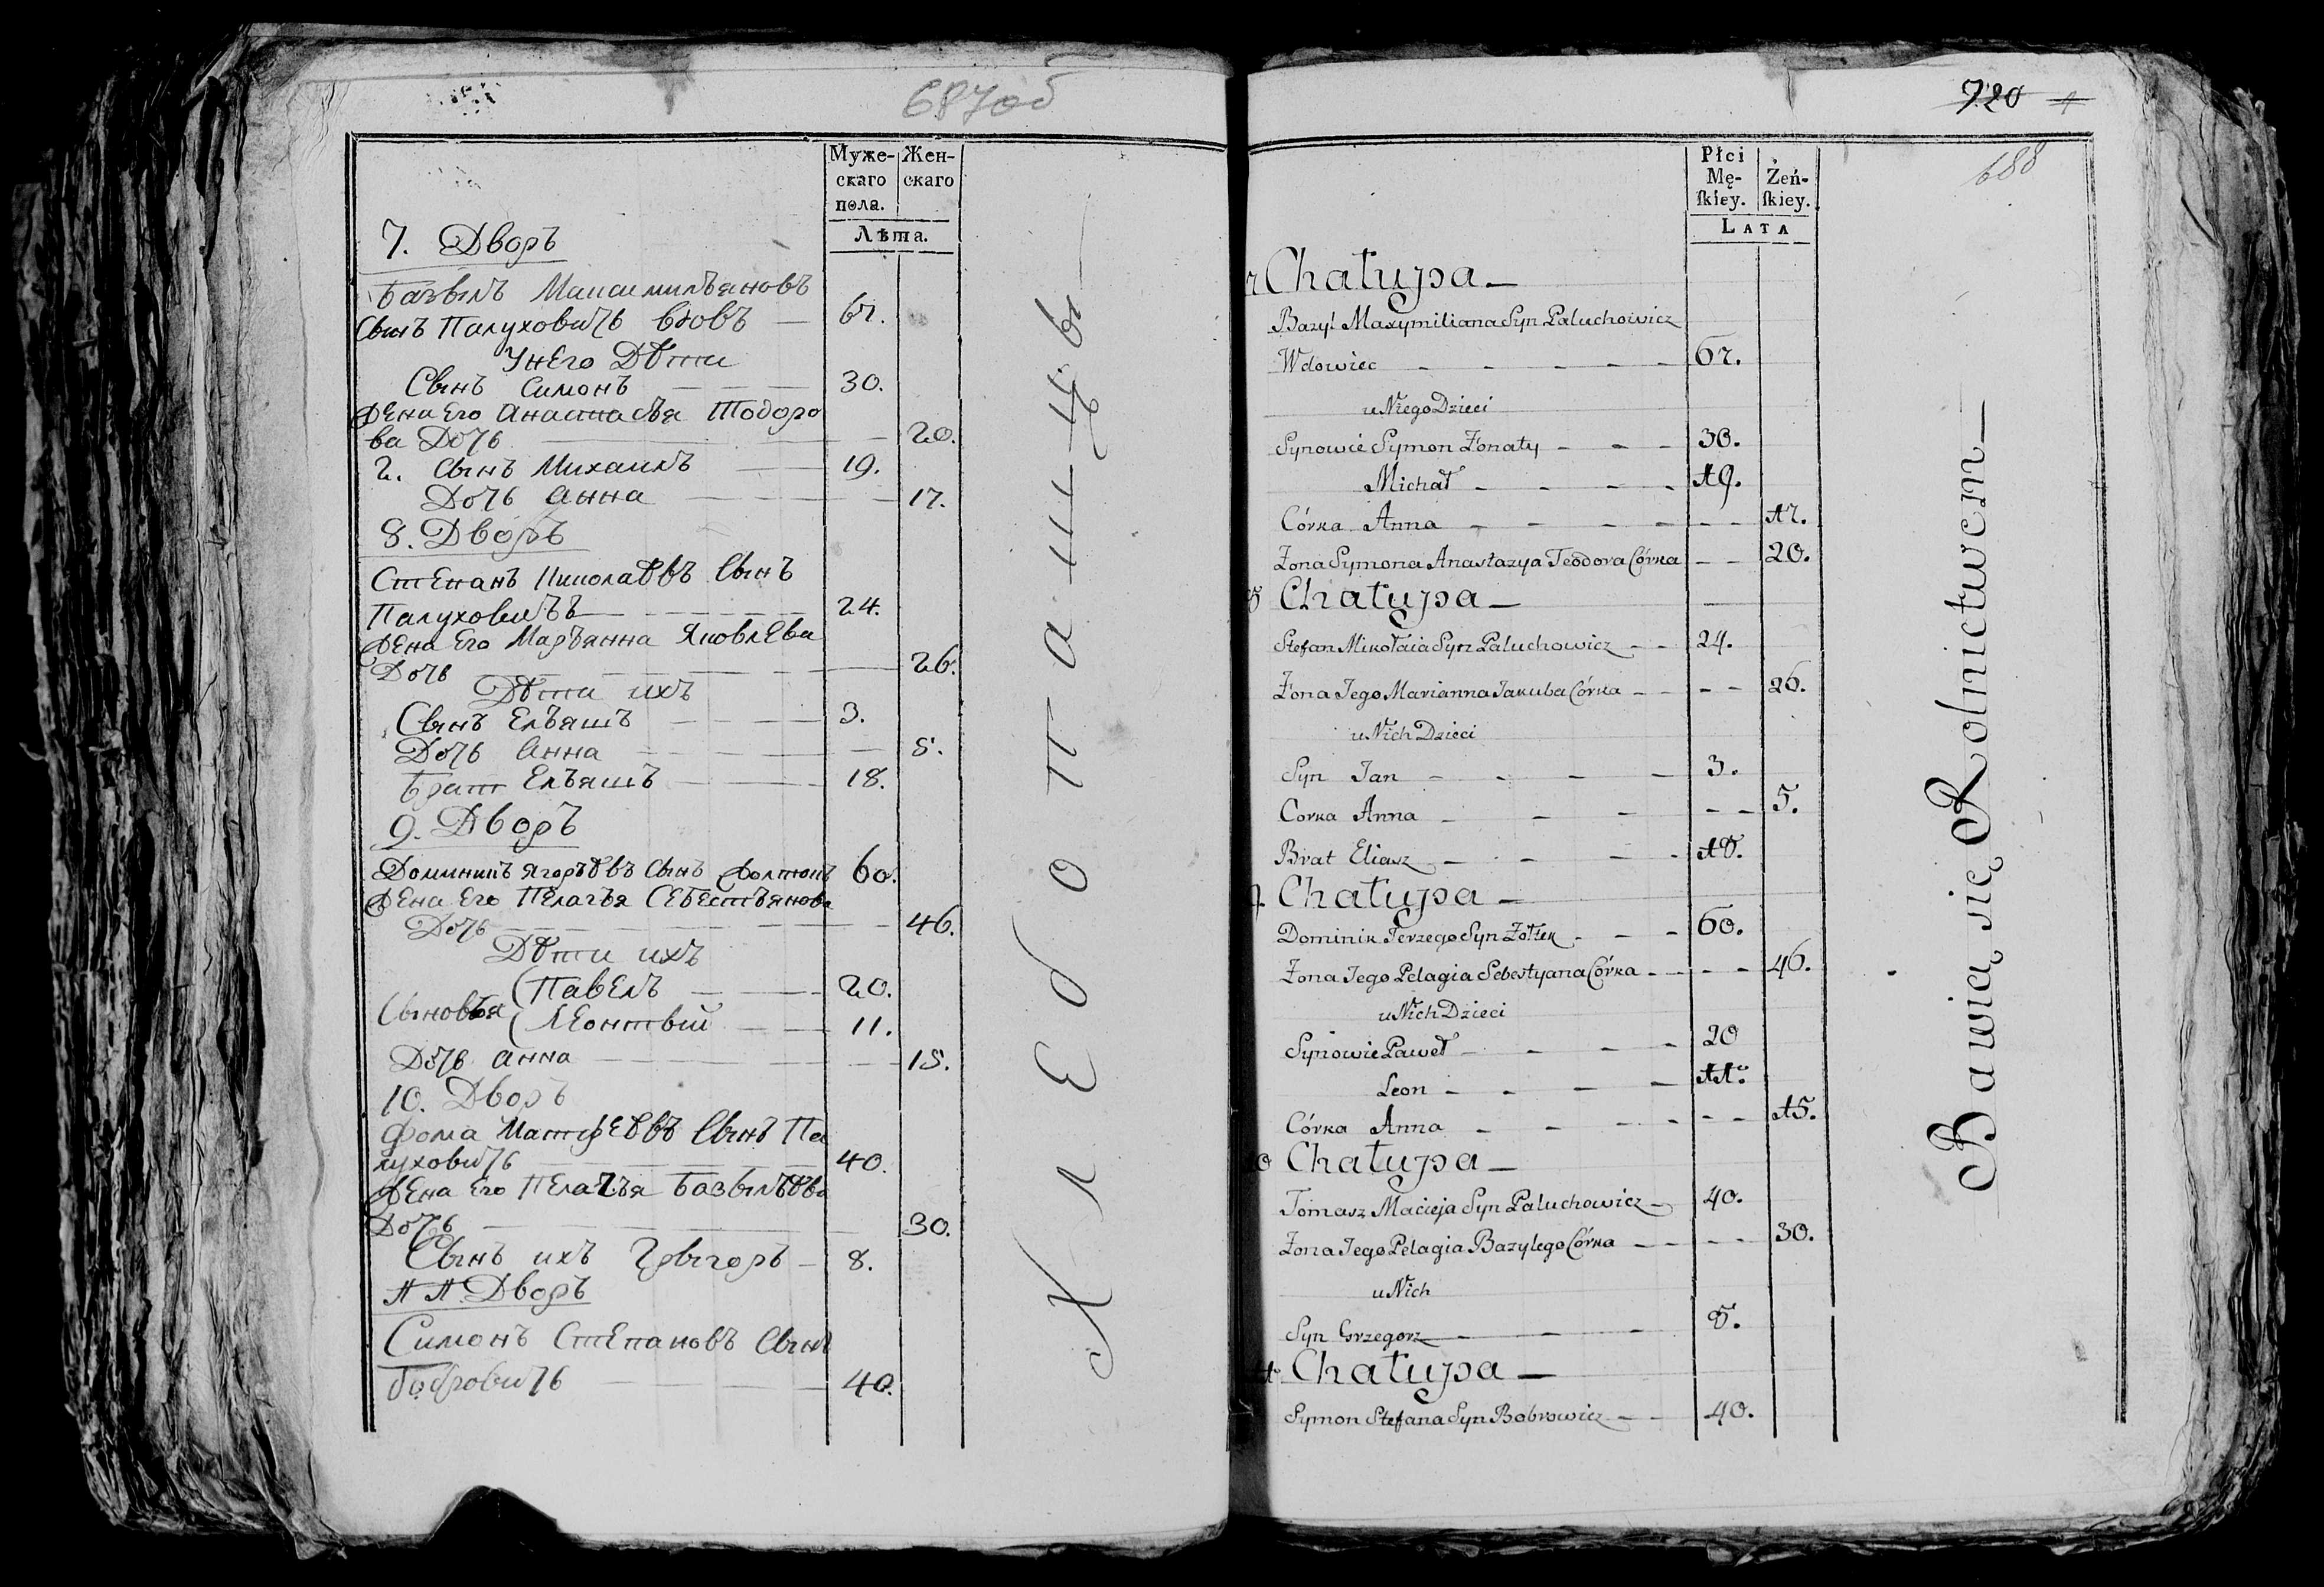 687об
Муже-
скаго
пола.
Жен-
скаго
Лѣта.
7. Дворъ
Базыль Максимильяновъ
Сынъ Палуховичь вдовъ — 67.
У него Дѣти
Сынъ Симонъ — 30.
Жена Его Анастасья Тодоро
ва Дочь — 20.
2. Сынъ Михаилъ — 19.
Дочь Анна — 17.
8. Дворъ
Степанъ Николаѣвъ Сынъ
Палуховичъ — 24.
Жена Его Марьянна Яковлева
Дочь — 26.
Дѣти ихъ
Сынъ Ельяшъ — 3.
Дочь Анна — 5.
Брат Ельяшъ — 18.
9. Дворъ
Доминикъ Ягорѣвъ Сынъ 60.
Жена Его Пелагья Себестьянова
Дочь — 46.
Дѣти ихъ
Сыновья (Павелъ — 20.
(Леонтый — 11.
Дочь Анна — 15.
10. Дворъ
Фома Матфеѣвъ Сынъ Па
луховичь — 40.
Жена Его Пелагья Базылѣва
Дочь — 30.
Сынъ ихъ Грыгоръ — 8.
11. Дворъ
Симонъ Степановъ Сынъ
Бобровичь — 40.
Хлебопашцы
720
688
Płci
Mę-
ſkiey.
Żeń-
ſkiey.
LATA
7 Chałupa —
Bazyl Maxymiliana Syn Paluchowicz
Wdowiec — 67.
u Niego Dzieci
Synowie Symon Żonaty — 30.
Michał — 19.
Córka Anna — 17.
Żona Symona Anastazya Teodora Córka — 20.
8 Chałupa —
Stefan Mikołaia Syn Paluchowicz — 24.
Żona Jego Marianna Jakuba Córka — 26.
u Nich Dzieci
Syn Jan — 3.
Corka Anna — 5.
Brat Eliasz — 18.
9. Chałupa —
Dominik Jerzego Syn Żołtek — 60.
Żona Jego Pelagia Sebestyana Córka — 46.
u Nich Dzieci
Synowie Paweł — 20
Leon — 11.
Córka Anna — 15.
0 Chałupa —
Tomasz Macieja Syn Paluchowicz — 40.
Żona Jego Pelagia Bazylego Córka — 30.
u Nich
Syn Grzegorz — 8.
1 Chałupa —
Symon Stefana Syn Bobrowicz — 40.
Bawią się Rolnictwem —